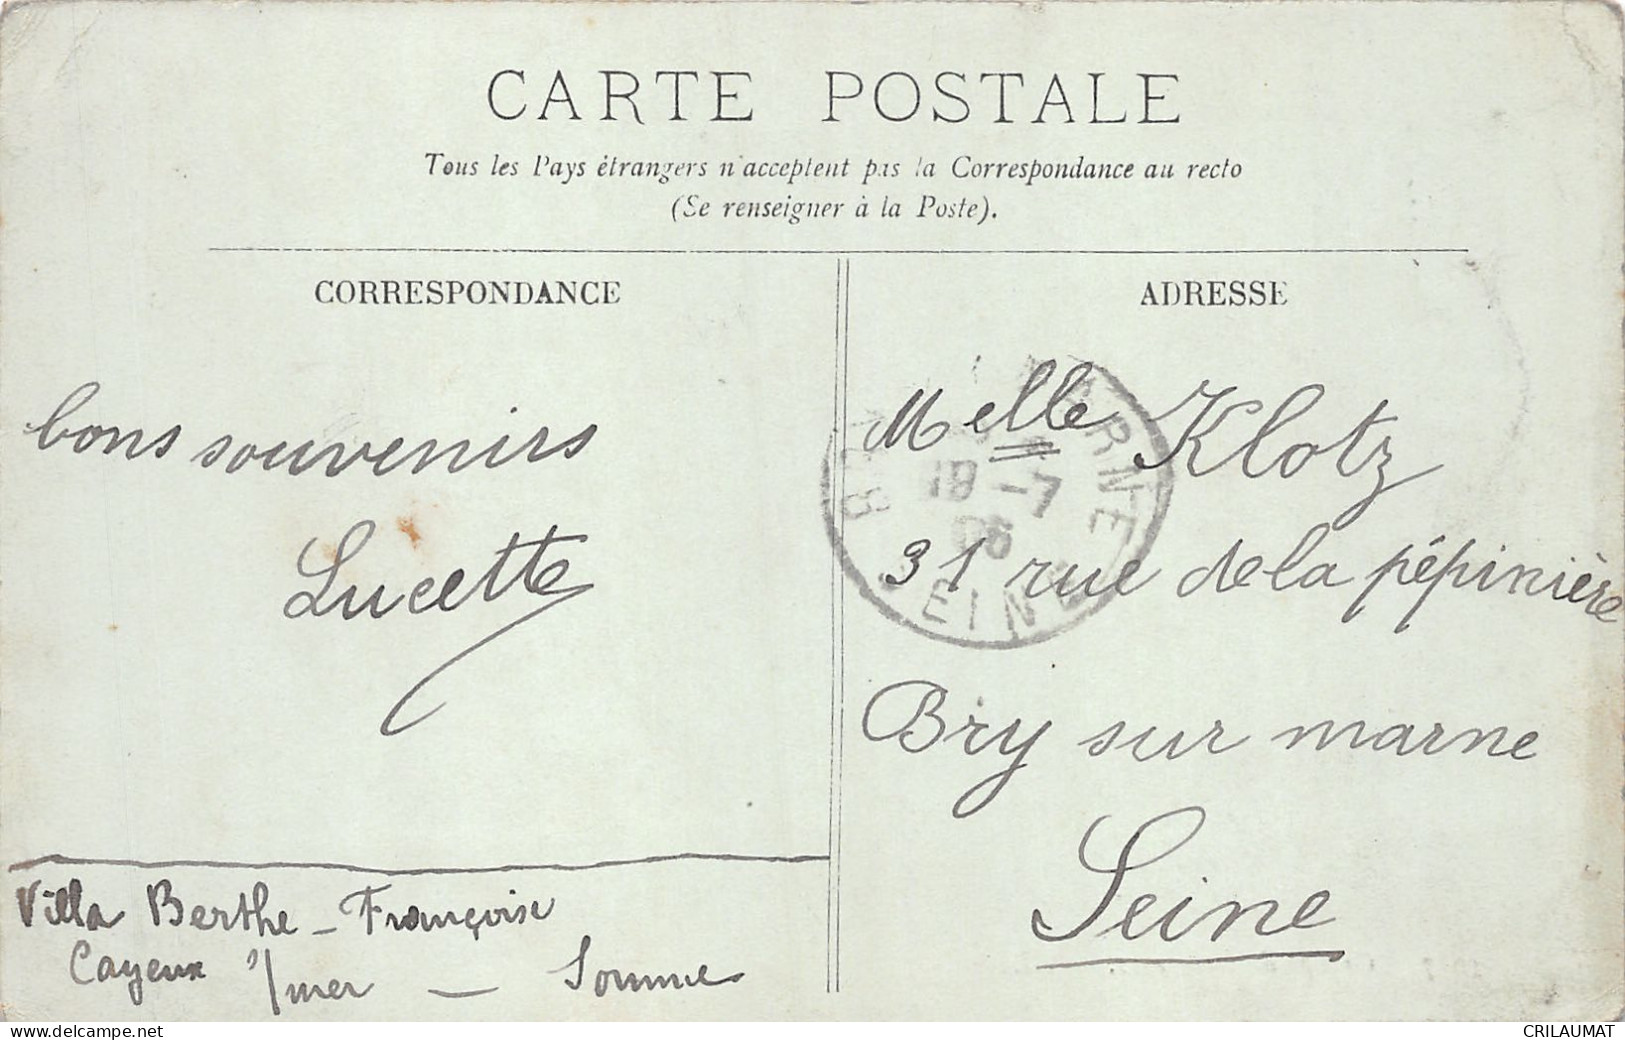 CARTE POSTALE
Tous les Pays étrangers n'acceptent pas la Correspondance au recto
(Se renseigner à la Poste).
CORRESPONDANCE
bons souvenirs
Lucette
Villa Berthe - Françoise
Cayeux s/mer - Somme
ADRESSE
Melle Klotz
31 rue de la pépinière
Bry sur marne
Seine
MARNE
18 -7
06
SEINE
www.delcampe.net
CRILAUMAT